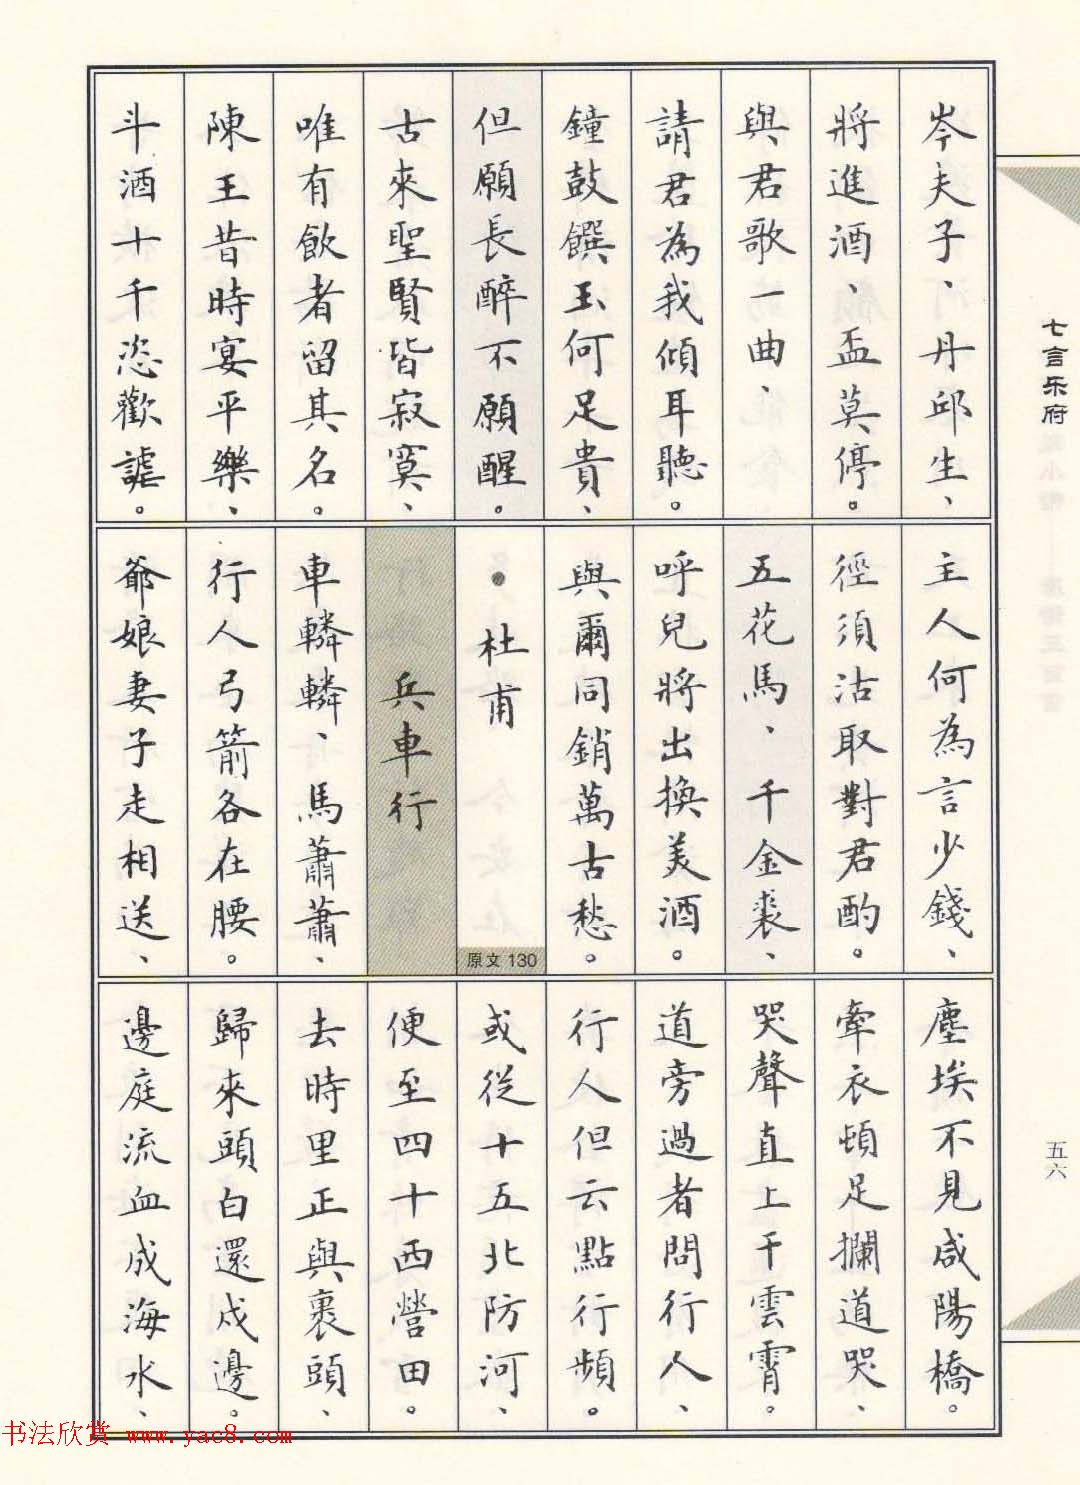 岑夫子、丹邱生、
將進酒、盃莫停。
與君歌一曲、
請君為我傾耳聽。
鐘鼓饌玉何足貴、
但願長醉不願醒。
古來聖賢皆寂寞、
唯有飲者留其名。
陳王昔時宴平樂、
斗酒十千恣歡謔。
主人何為言少錢、
徑須沽取對君酌。
五花馬、千金裘、
呼兒將出換美酒。
與爾同銷萬古愁。
•杜甫
原文 130
兵車行
車轔轔、馬蕭蕭、
行人弓箭各在腰。
爺娘妻子走相送、
塵埃不見咸陽橋。
牽衣頓足攔道哭、
哭聲直上干雲霄。
道旁過者問行人、
行人但云點行頻。
或從十五北防河、
便至四十西營田。
去時里正與裹頭、
歸來頭白還戍邊。
邊庭流血成海水、
七言乐府
五六
书法欣赏 www.yac8.com